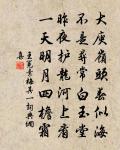 大庾嶺頭春似海
不意尋常白玉堂
昨夜護龍河上看
一天明月四檐霜
王冕素梅其一詞典網
集